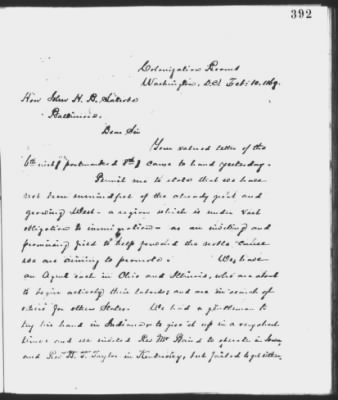 392
Colonization Rooms
Washington, D.C. Feb: 10. 1869.
Hon John H. B. Latrobe
Baltimore.
Dear Sir
Your valued letter of the
6th inst (postmarked 8th) came to hand yesterday.
Permit me to state that we have
not been unmindful of the already great and
growing West - a region which is under vast
obligation to immigration - as an inviting and
promising field to help forward the noble cause
we are aiming to promote. We have
an Agent each in Ohio and Illinois, who are about
to begin actively their labors, and are in search of
others for other States. We had a gentleman to
try his hand in Indiana to give it up in a very short
time: and we invited Rev Mr Baird to operate in Iowa
and Rev B. F. Taylor in Kentucky, but failed to get either.